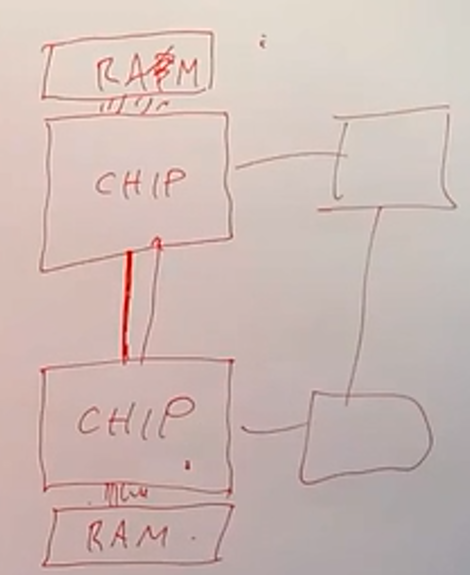 RAM
CHIP
CHIP
RAM